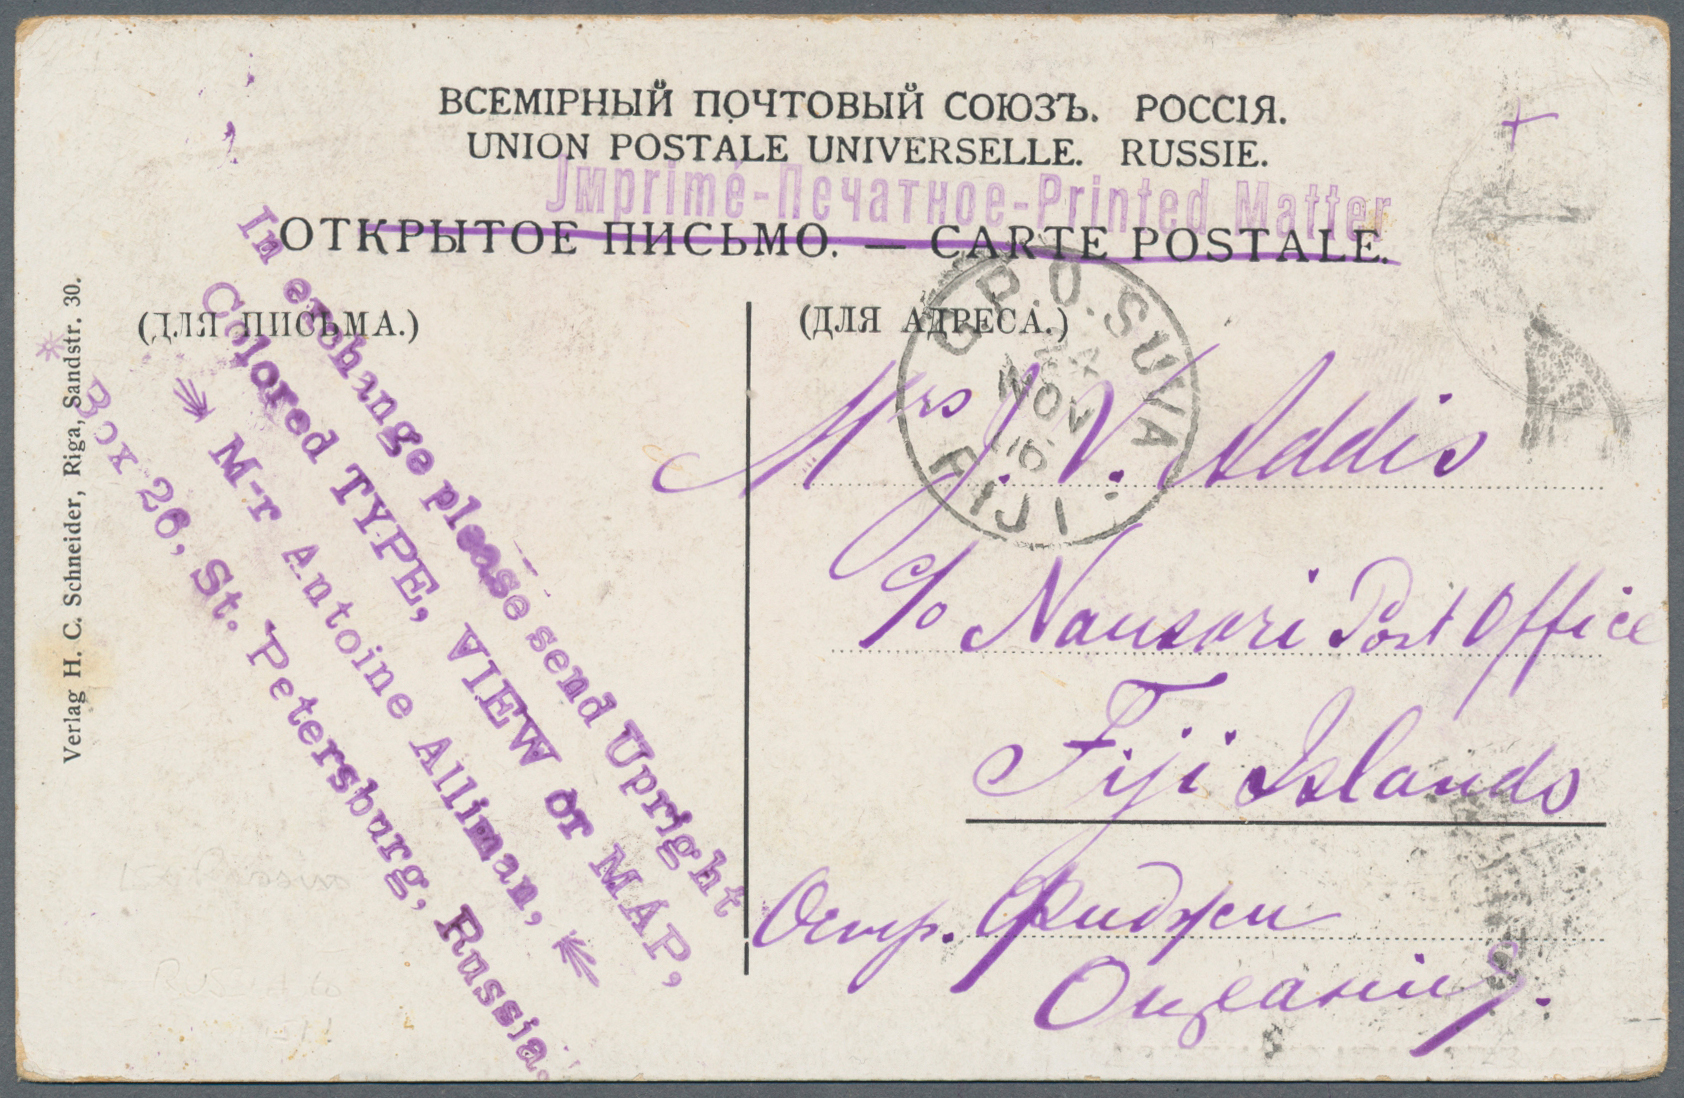 ВСЕМІРНЫЙ ПОЧТОВЫЙ СОЮЗЪ. РОССІЯ.
UNION POSTALE UNIVERSELLE. RUSSIE.
Jmprimé-Печатное-Printed Matter
ОТКРЫТОЕ ПИСЬМО. — CARTE POSTALE.
(ДЛЯ ПИСЬМА.)
(ДЛЯ АДРЕСА.)
In exchange please send Upright
Colored TYPE, VIEW or MAP,
M-r Antoine Alliman,
Box 26, St. Petersburg, Russia.
Verlag H. C. Schneider, Riga, Sandstr. 30.
G.P.O. SUVA
NOV
FIJI.
Mrs J. V. Addis
c/o Nausori Post Office
Fiji Islands
Остр. Фиджи
Океанія.